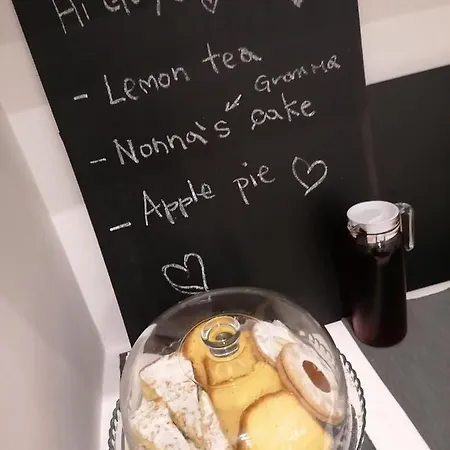 Hi Guys
- Lemon tea
Gramma
- Nonna's cake
- Apple pie